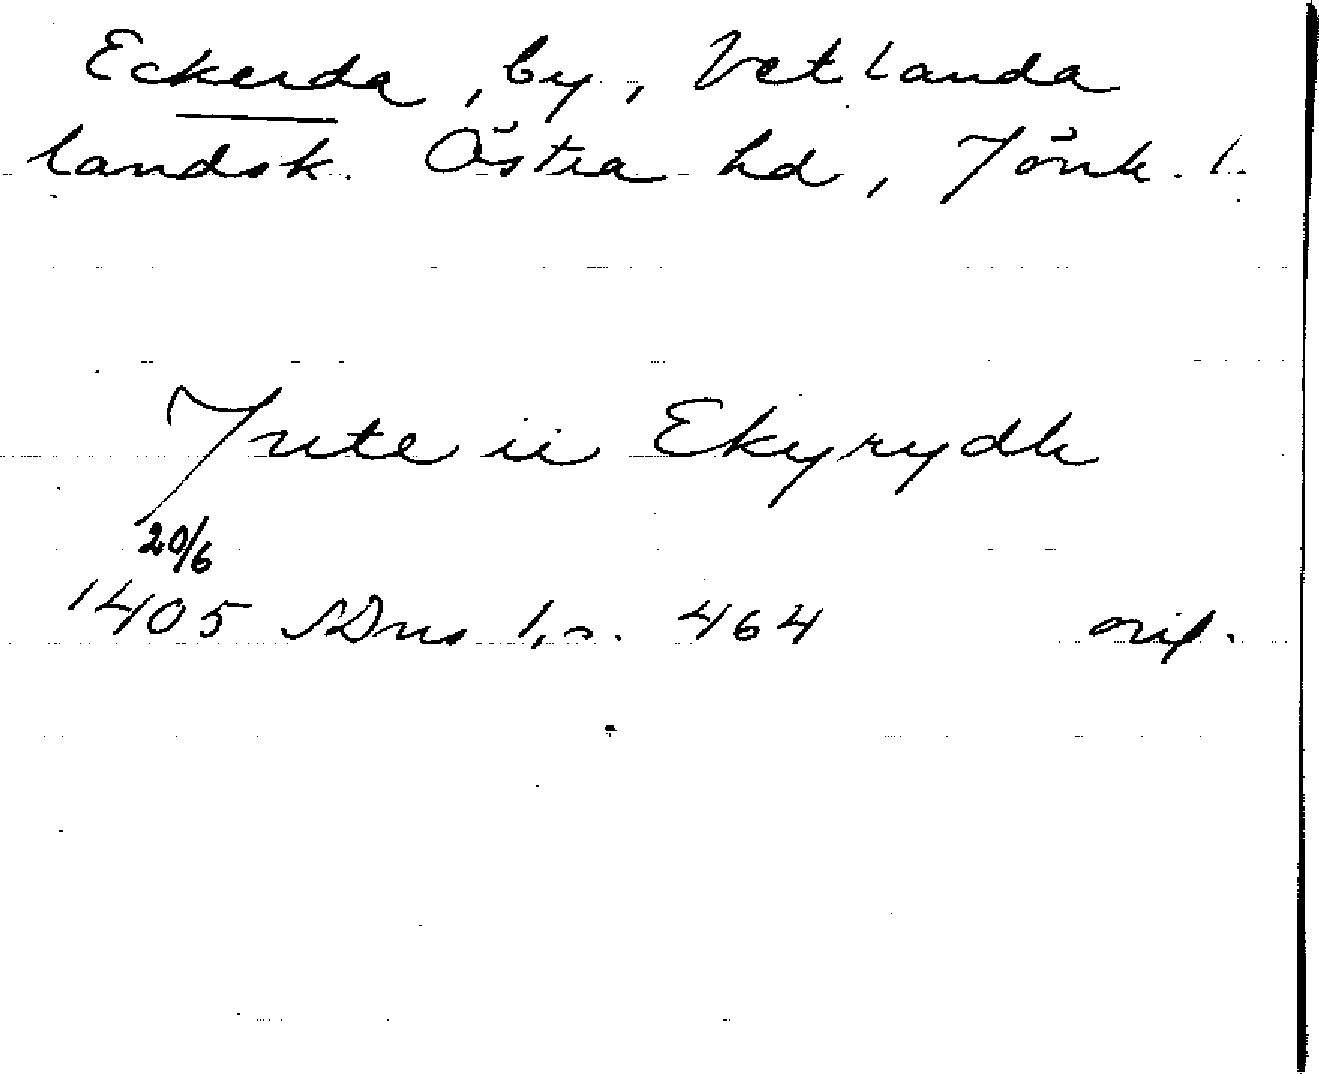 Eckerda, by, Vetlanda
landsk. Östra hd, Jönk. l.
Jute ii Ekyrydh
20/6
1405 SDns 1, s. 464 orig.